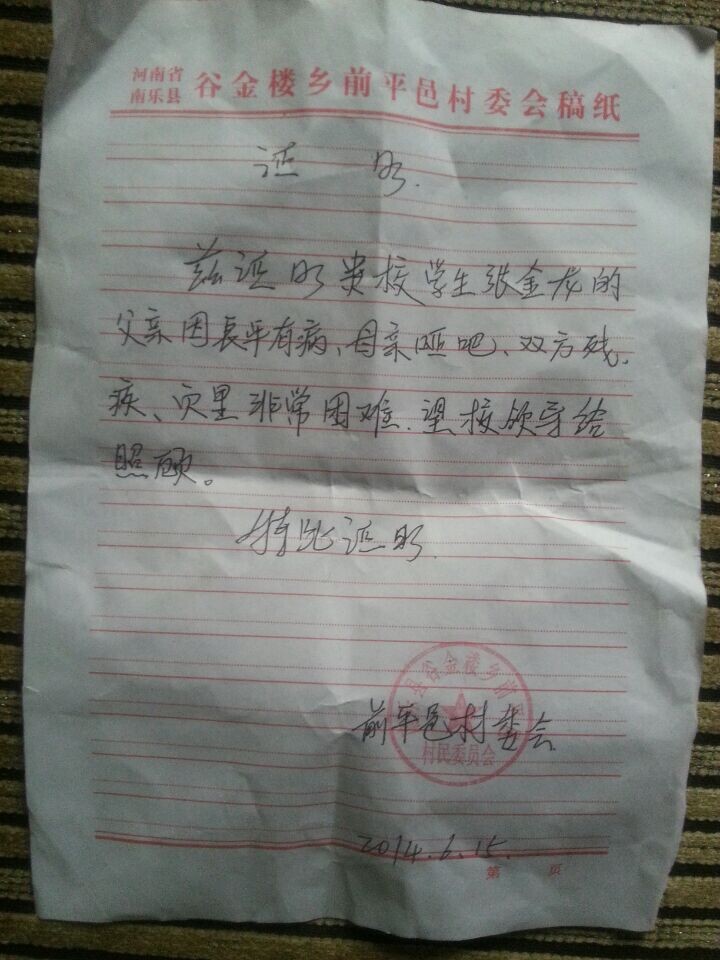 河南省
南乐县 谷金楼乡前平邑村委会稿纸
证 明.
兹证明贵校学生张金龙的
父亲因长年有病、母亲哑吧、双方残
疾、家里非常困难.望校领导给
照顾。
特此证明.
县谷金楼乡前
村民委员会
前平邑村委会
2014.6.15.
第 页